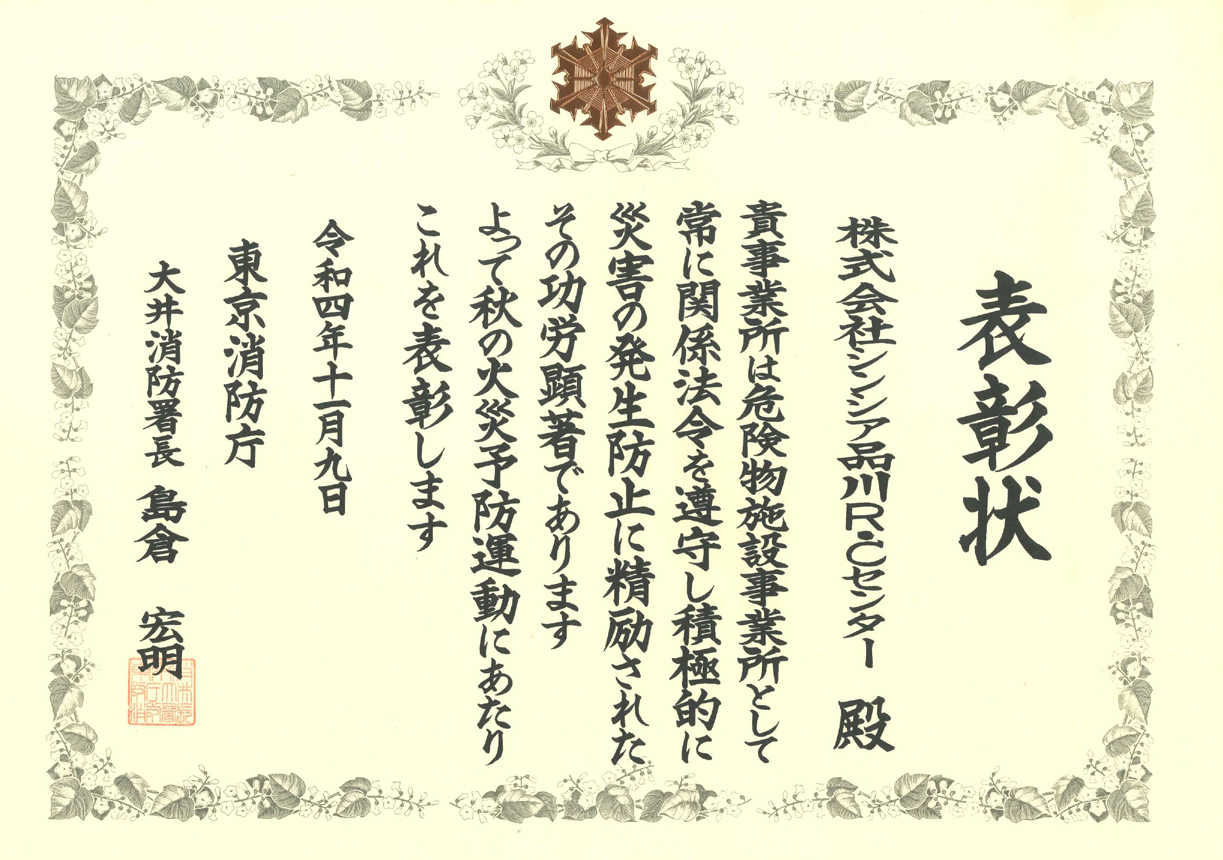 表彰状
株式会社シンシア品川RCセンター 殿
貴事業所は危険物施設事業所として
常に関係法令を遵守し積極的に
災害の発生防止に精励された
その功労顕著であります
よって秋の火災予防運動にあたり
これを表彰します
令和四年十一月九日
東京消防庁
大井消防署長 島倉 宏明